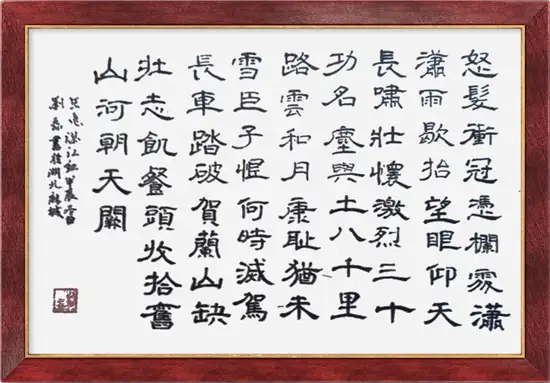 怒髮衝冠憑欄處瀟
瀟雨歇抬望眼仰天
長嘯壯懷激烈三十
功名塵與土八千里
路雲和月康恥猶未
雪臣子恨何時滅駕
長車踏破賀蘭山缺
壯志飢餐頭收拾舊
山河朝天闕
岳飛滿江紅甲辰冬
劉書於湖北麻城